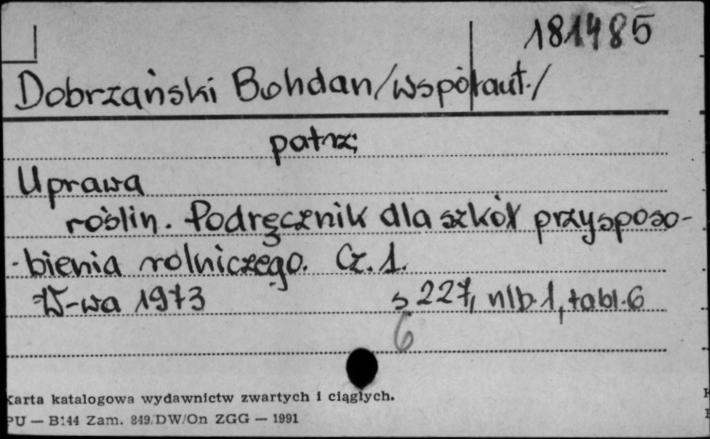 181485
Dobrzański Bohdan /współaut./
patrz:
Uprawa
roślin. Podręcznik dla szkół przysposo-
-bienia rolniczego. Cz. 1.
W-wa 1973 s 227, nlb. 1, tabl. 6
6
Karta katalogowa wydawnictw zwartych i ciągłych.
PU — B144 Zam. 849/DW/On ZGG — 1991